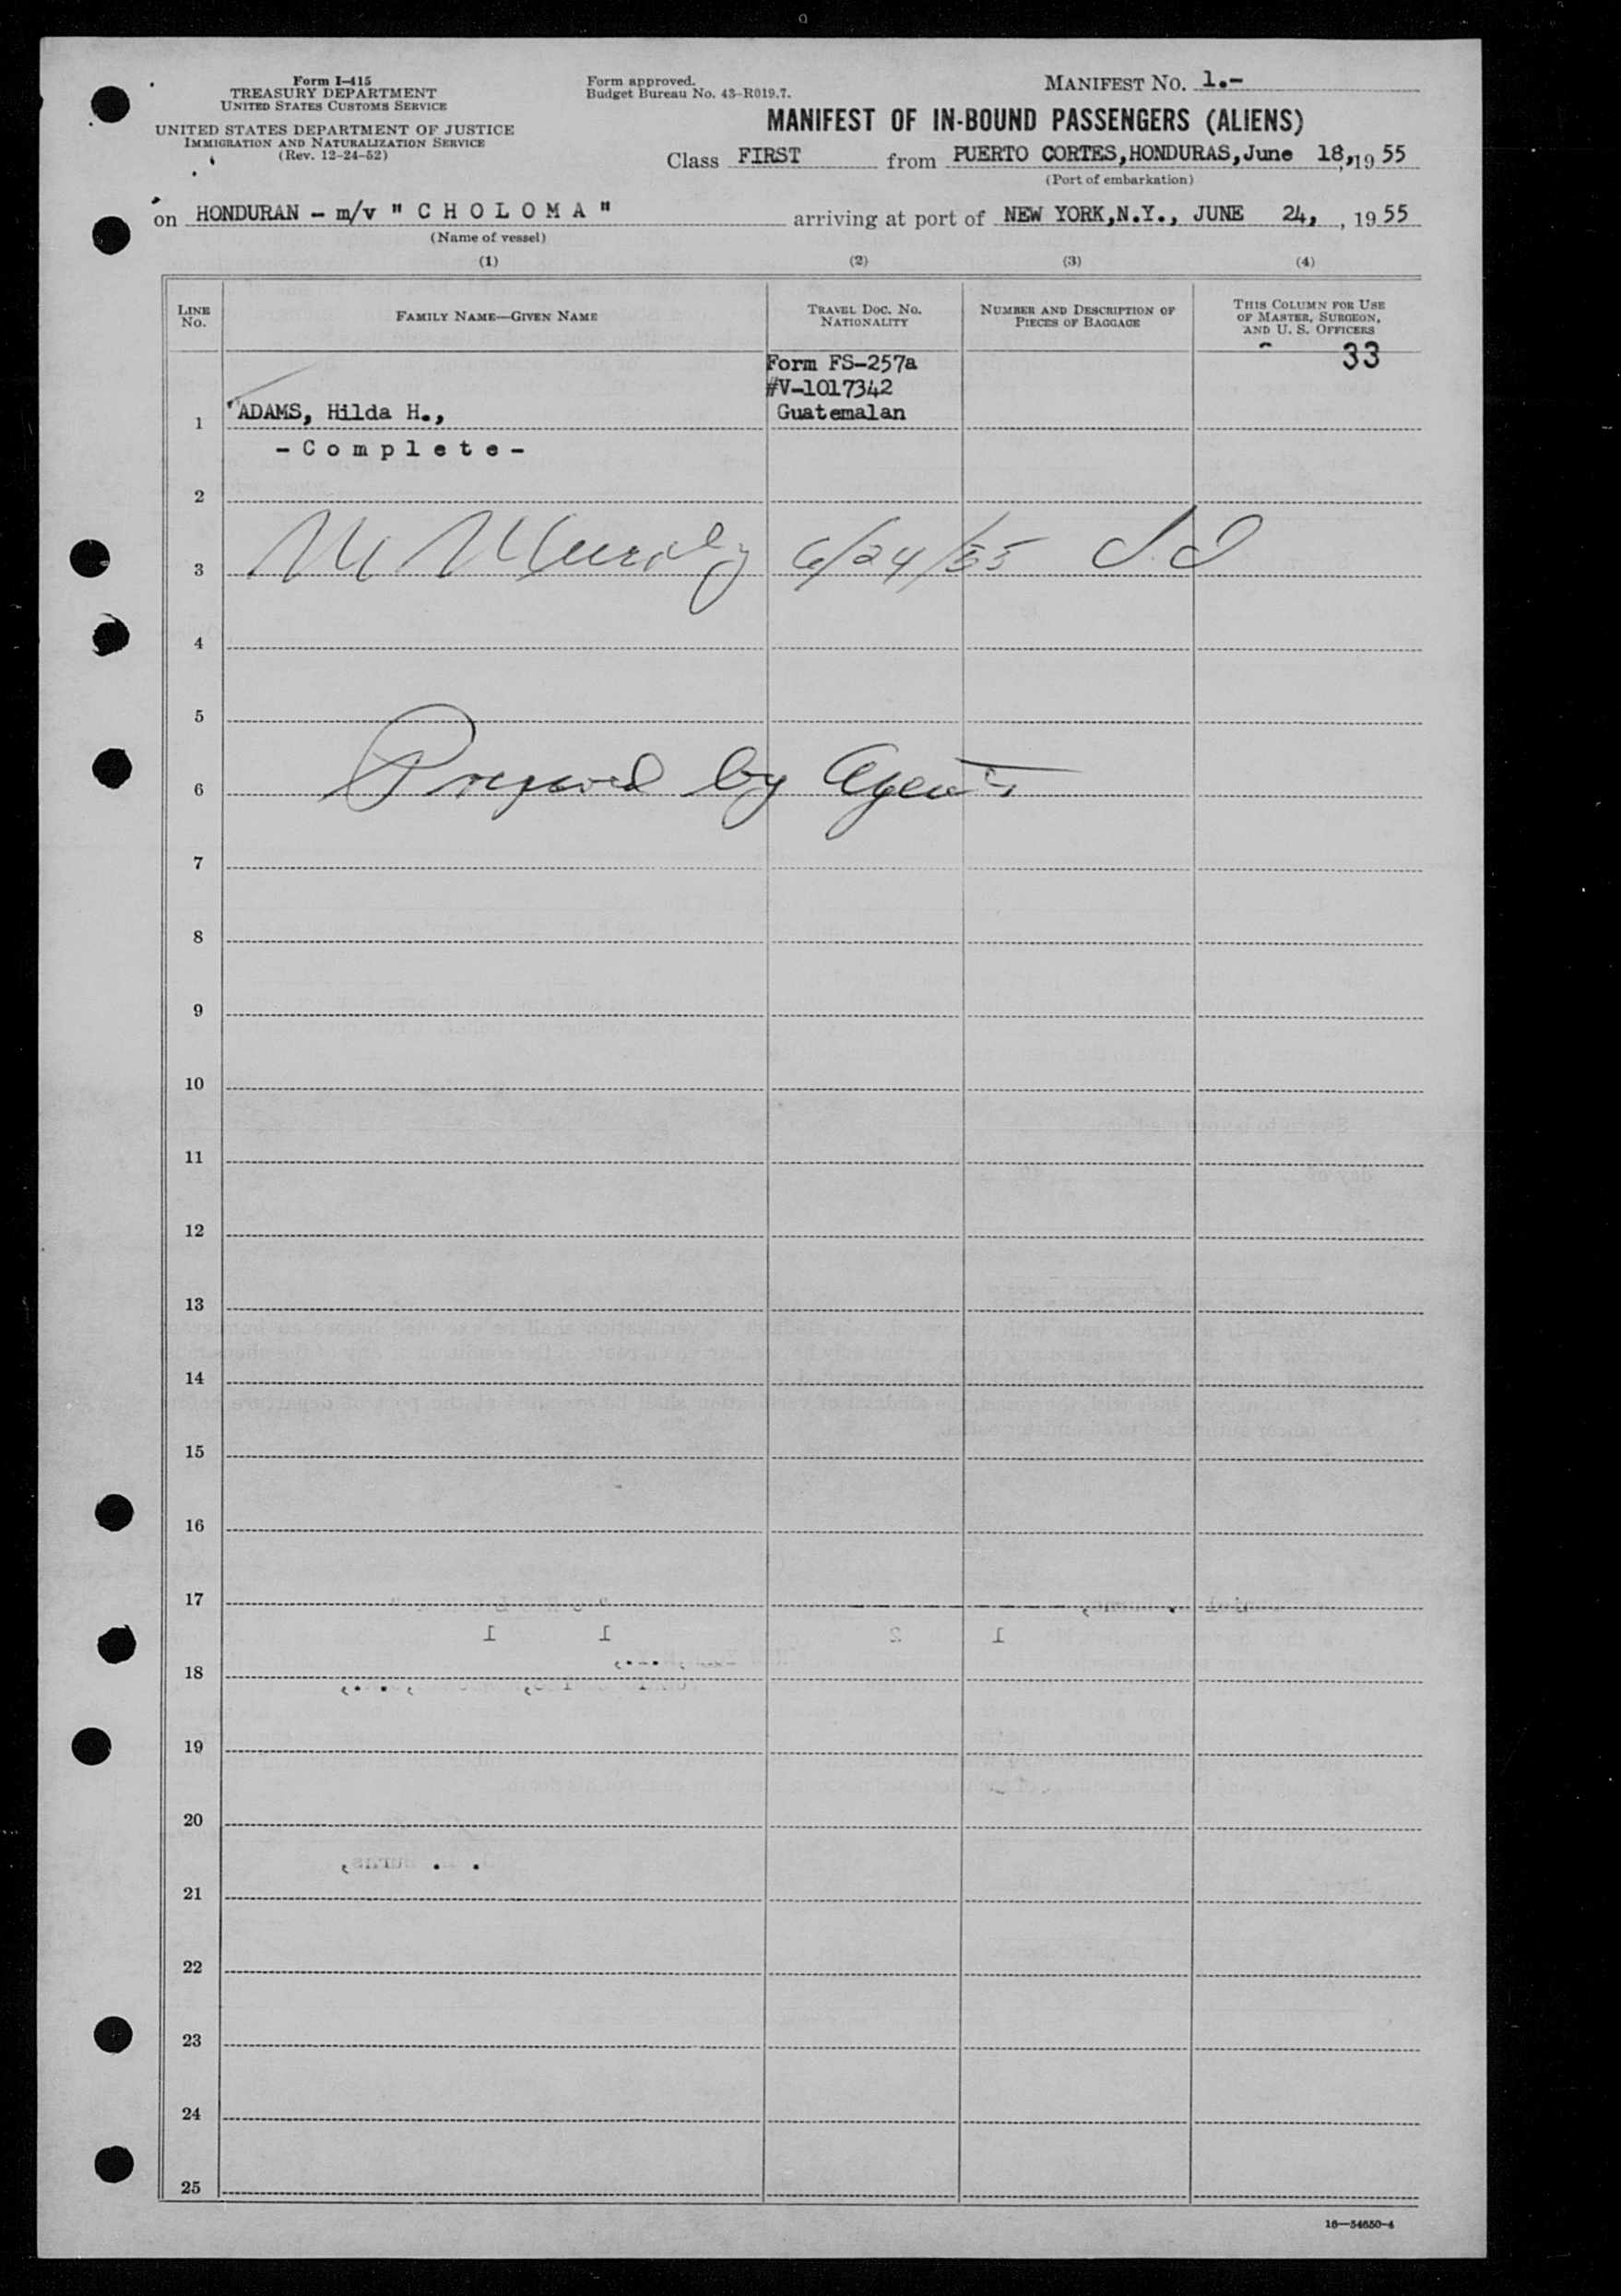 Form I-415
TREASURY DEPARTMENT
UNITED STATES CUSTOMS SERVICE
UNITED STATES DEPARTMENT OF JUSTICE
IMMIGRATION AND NATURALIZATION SERVICE
(Rev. 12-24-52)
Form approved.
Budget Bureau No. 43-R019.7.
MANIFEST NO. 1.-
MANIFEST OF IN-BOUND PASSENGERS (ALIENS)
Class FIRST from PUERTO CORTES, HONDURAS, June 18, 1955
(Port of embarkation)
on HONDURAN - m/v " C H O L O M A " arriving at port of NEW YORK, N.Y., JUNE 24, , 1955
(Name of vessel)
(1) (2) (3) (4)
LINE NO. FAMILY NAME—GIVEN NAME TRAVEL DOC. NO. NATIONALITY NUMBER AND DESCRIPTION OF PIECES OF BAGGAGE THIS COLUMN FOR USE OF MASTER, SURGEON, AND U. S. OFFICERS
33
Form FS-257a
#V-1017342
1 ADAMS, Hilda H., Guatemalan
- C o m p l e t e -
2
3 6/24/55
4
5
6 Prepared by Agents
7
8
9
10
11
12
13
14
15
16
17
18
19
20
21
22
23
24
25
16—54650-4